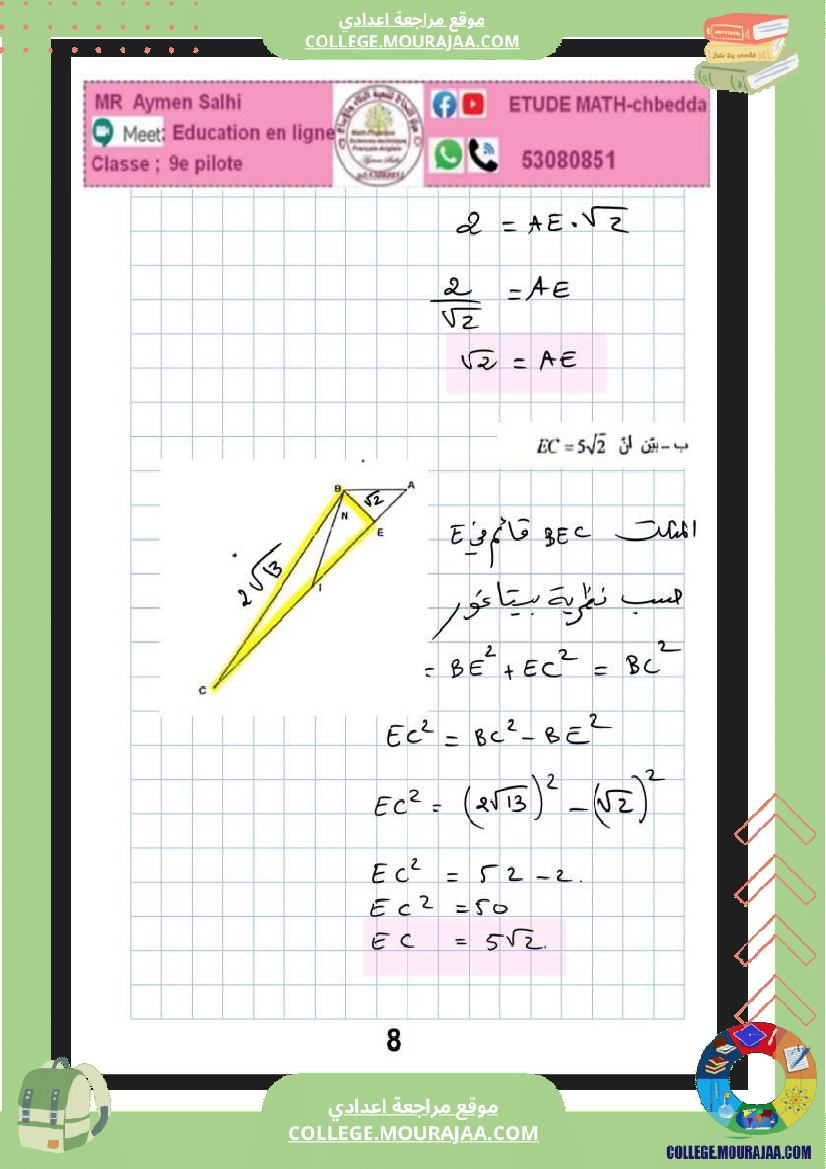 موقع مراجعة اعدادي
COLLEGE.MOURAJAA.COM
MR Aymen Salhi
Meet: Education en ligne
Classe ; 9e pilote
ETUDE MATH-chbedda
53080851
2 = AE . √2
2/√2 = AE
√2 = AE
ب - بيّن أنّ EC = 5√2
B
A
√2
N
E
2√13
I
C
المثلث BEC قائم في E
حسب نظرية بيتاغور
= BE² + EC² = BC²
EC² = BC² - BE²
EC² = (2√13)² - (√2)²
EC² = 52 - 2.
EC² = 50
EC = 5√2.
8
موقع مراجعة اعدادي
COLLEGE.MOURAJAA.COM
COLLEGE.MOURAJAA.COM